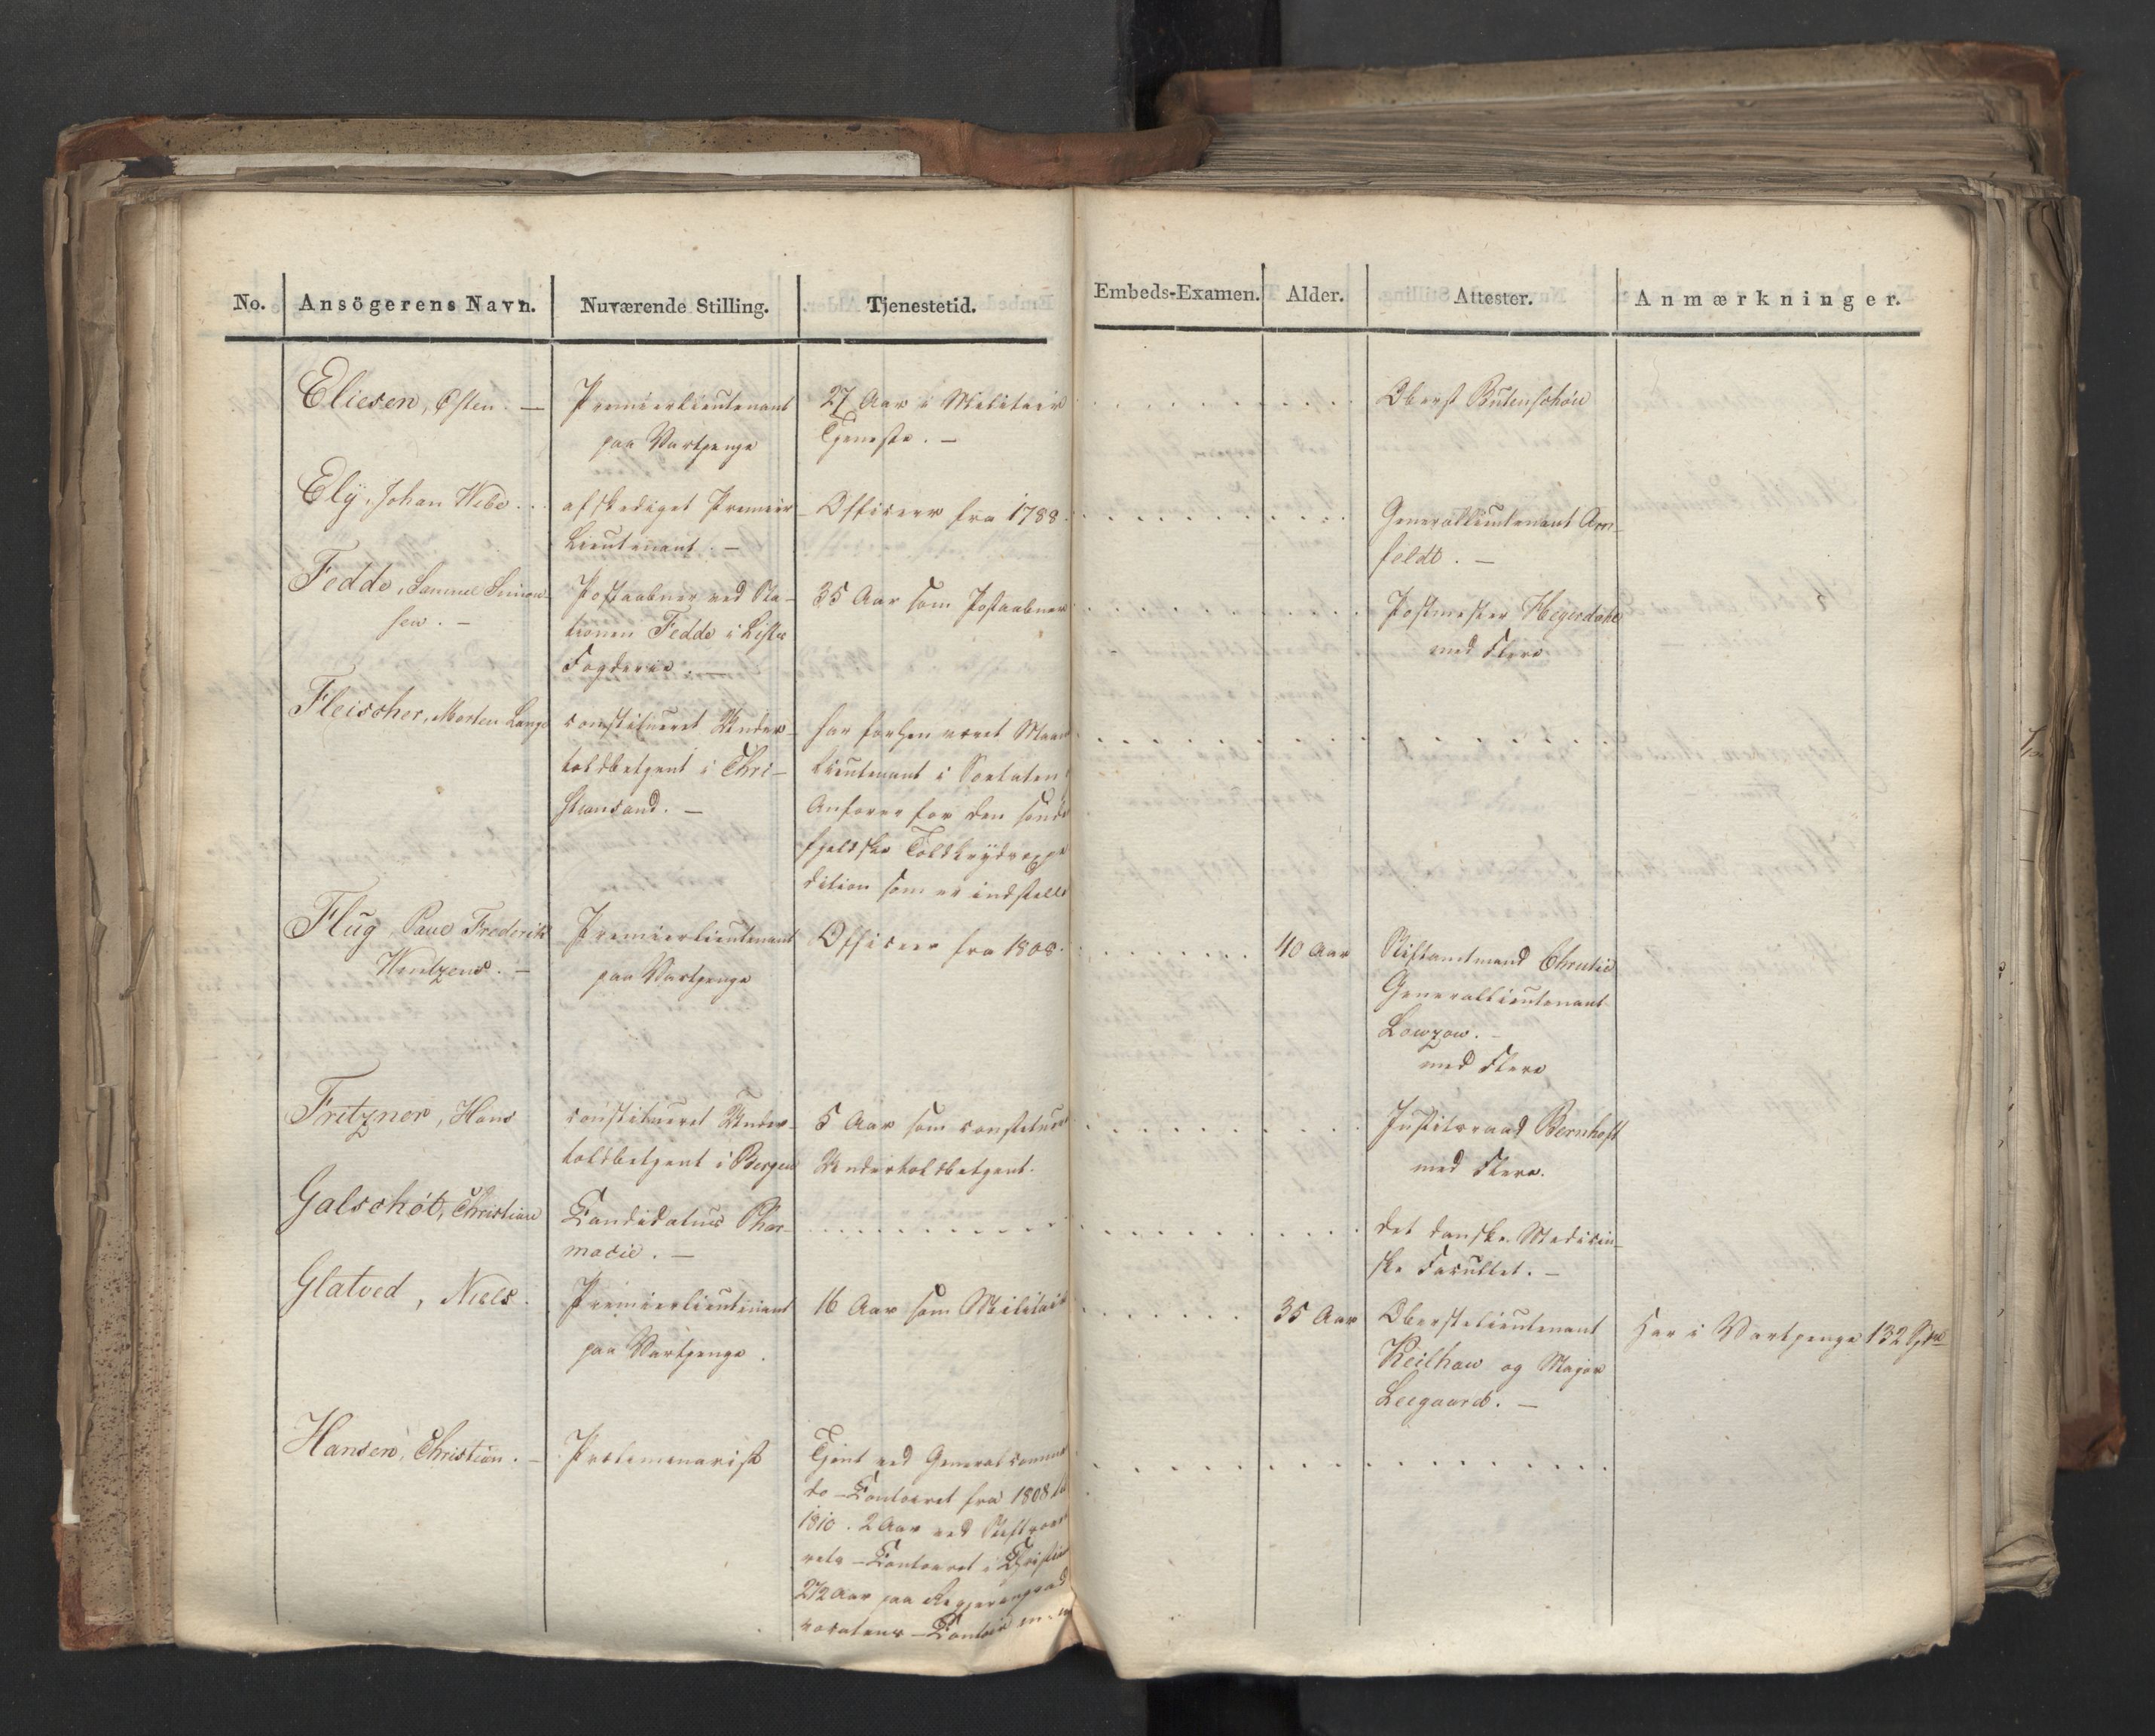 No. Ansögerens Navn. Nuværende Stilling. Tjenestetid. Embeds-Examen. Alder. Attester. Anmærkninger.
Eliesen, Østen. —
Premierlieutenant
paa Vartpenge
27 Aar i Militair
Tjeneste. —
Oberst Bütenschön
Elÿ, Johan Wibe . .
afskediget Premier
Lieutenant. —
Officeer fra 1788.
Generallieutenant Arn-
feldt. —
Fedde, Samuel Simon-
sen. —
Postaabner ved Sta-
tionen Fedde i Lister
Fogderie. —
35 Aar som Postaabner
Postmester Hegerdahl
med Flere
Fleischer, Morten Lange
constitueret Under-
toldbetjent i Chri-
stiansand. —
har forhen været Maan
Lieutenant i Soetaten,
Anförer for den sönd
fjeldske Toldkrÿdsexpe
dition som er indstillt
Flüg, Paul Frederik
Wentzens. —
Premierlieutenant
paa Vartpenge
Officeer fra 1808.
40 Aar
Stiftamtmand Christie
Generallieutenant
Lowzow. —
med Flere
Fritzner, Hans
constitueret Under-
toldbetjent i Bergen
5 Aar som constitueret
Undertoldbetjent.
Justitsraad Bernhoft
med Flere.
Galschöt, Christian
Candidatus Phar-
macie. —
det danske Medicin-
ske Facultet. —
Glatved, Niels.
Premierlieutenant
paa Vartpenge.
16 Aar som Militair
35 Aar
Oberstelieutenant
Keilhau og Major
Leegaard. —
Har i Vartpenge 132 Spd
Hansen, Christian. —
Preliminarist
Tjent ved General comman
do-Contoiret fra 1808 til
1810. 2 Aar ved Stiftprov
-Contoiret i Christia
2 1/2 Aar paa Regjeringsad
vocatens-Contoir